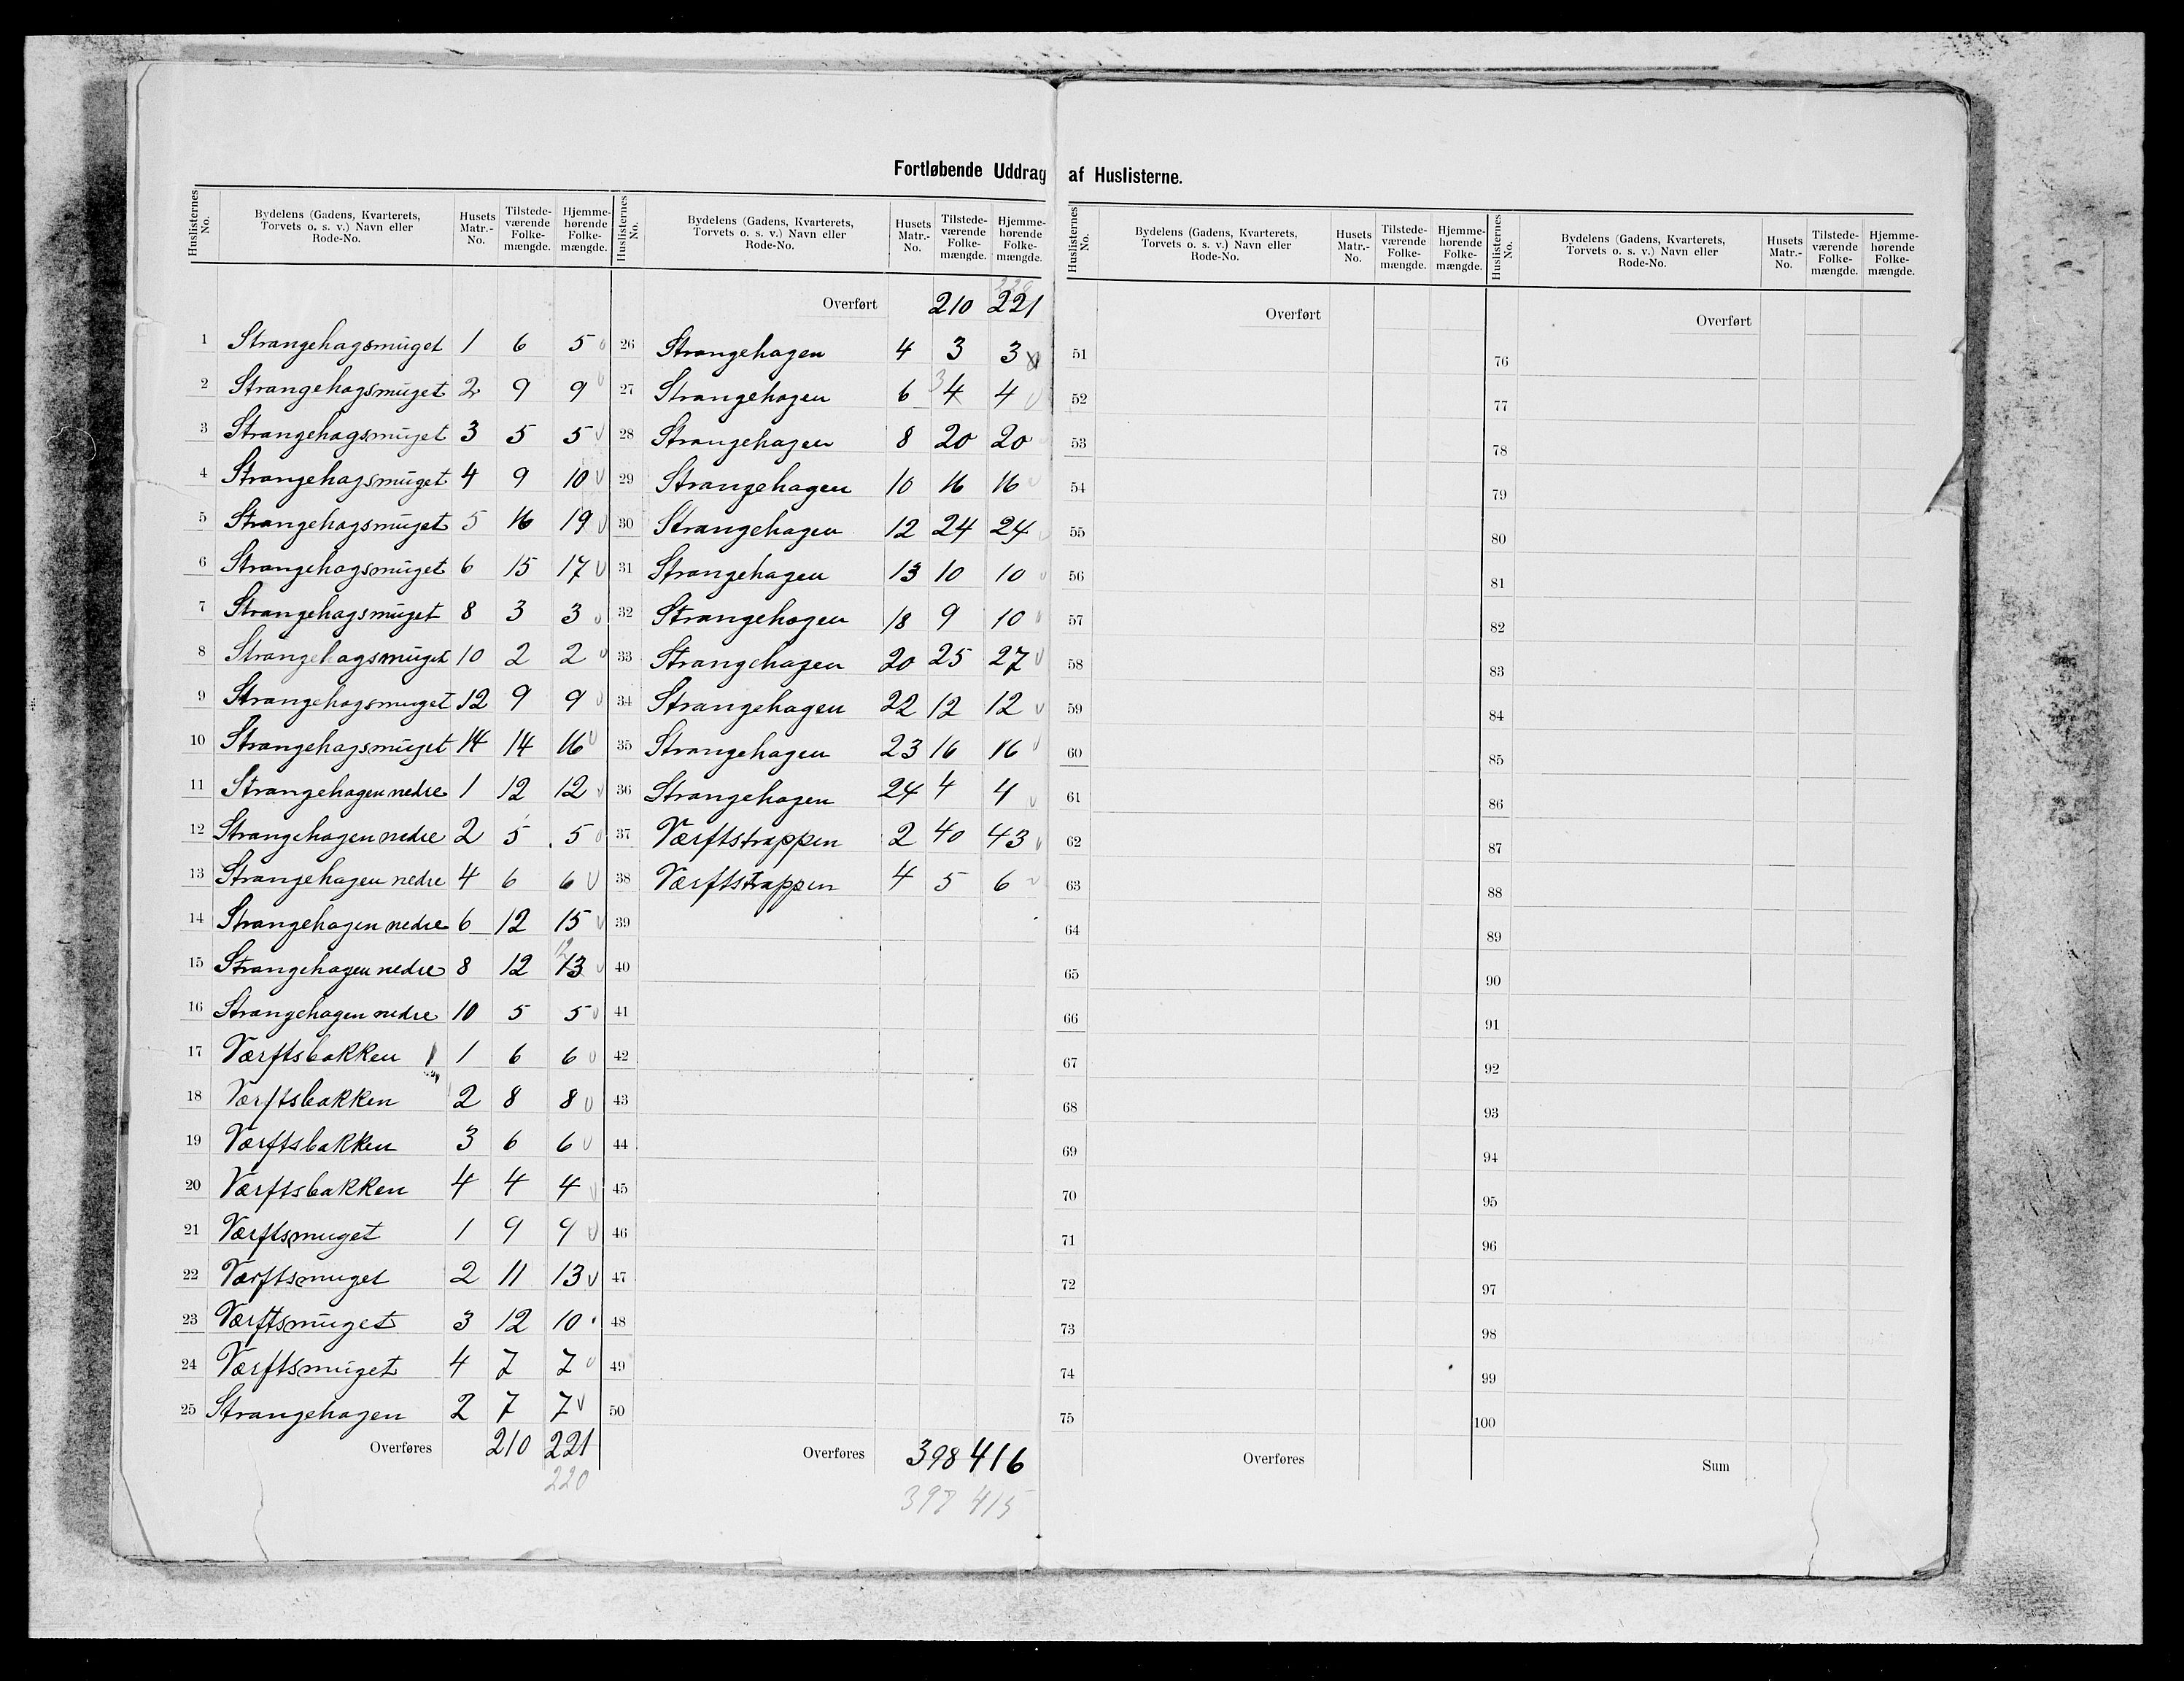 Fortløbende Uddrag af Huslisterne.
Huslisternes No. | Bydelens (Gadens, Kvarterets, Torvets o. s. v.) Navn eller Rode-No. | Husets Matr.-No. | Tilstedeværende Folkemængde. | Hjemmehørende Folkemængde.
1 Strangehagsmuget 1 6 5
2 Strangehagsmuget 2 9 9
3 Strangehagsmuget 3 5 5
4 Strangehagsmuget 4 9 10
5 Strangehagsmuget 5 16 19
6 Strangehagsmuget 6 15 17
7 Strangehagsmuget 8 3 3
8 Strangehagsmuget 10 2 2
9 Strangehagsmuget 12 9 9
10 Strangehagsmuget 14 14 16
11 Strangehagen nedre 1 12 12
12 Strangehagen nedre 2 5 5
13 Strangehagen nedre 4 6 6
14 Strangehagen nedre 6 12 15
15 Strangehagen nedre 8 12 13 12
16 Strangehagen nedre 10 5 5
17 Værftsbakken 1 6 6
18 Værftsbakken 2 8 8
19 Værftsbakken 3 6 6
20 Værftsbakken 4 4 4
21 Værftsmuget 1 9 9
22 Værftsmuget 2 11 13
23 Værftsmuget 3 12 10
24 Værftsmuget 4 7 7
25 Strangehagen 2 7 7
Overføres 210 221
220
Huslisternes No. | Bydelens (Gadens, Kvarterets, Torvets o. s. v.) Navn eller Rode-No. | Husets Matr.-No. | Tilstedeværende Folkemængde. | Hjemmehørende Folkemængde.
Overført 210 221
26 Strangehagen 4 3 3
27 Strangehagen 6 3 4 4
28 Strangehagen 8 20 20
29 Strangehagen 10 16 16
30 Strangehagen 12 24 24
31 Strangehagen 13 10 10
32 Strangehagen 18 9 10
33 Strangehagen 20 25 27
34 Strangehagen 22 12 12
35 Strangehagen 23 16 16
36 Strangehagen 24 4 4
37 Værftstrappen 2 40 43
38 Værftstrappen 4 5 6
39
40
41
42
43
44
45
46
47
48
49
50
Overføres 398 416
397 415
Huslisternes No. | Bydelens (Gadens, Kvarterets, Torvets o. s. v.) Navn eller Rode-No. | Husets Matr.-No. | Tilstedeværende Folkemængde. | Hjemmehørende Folkemængde.
Overført
51
52
53
54
55
56
57
58
59
60
61
62
63
64
65
66
67
68
69
70
71
72
73
74
75
Overføres
Huslisternes No. | Bydelens (Gadens, Kvarterets, Torvets o. s. v.) Navn eller Rode-No. | Husets Matr.-No. | Tilstedeværende Folkemængde. | Hjemmehørende Folkemængde.
Overført
76
77
78
79
80
81
82
83
84
85
86
87
88
89
90
91
92
93
94
95
96
97
98
99
100
Sum